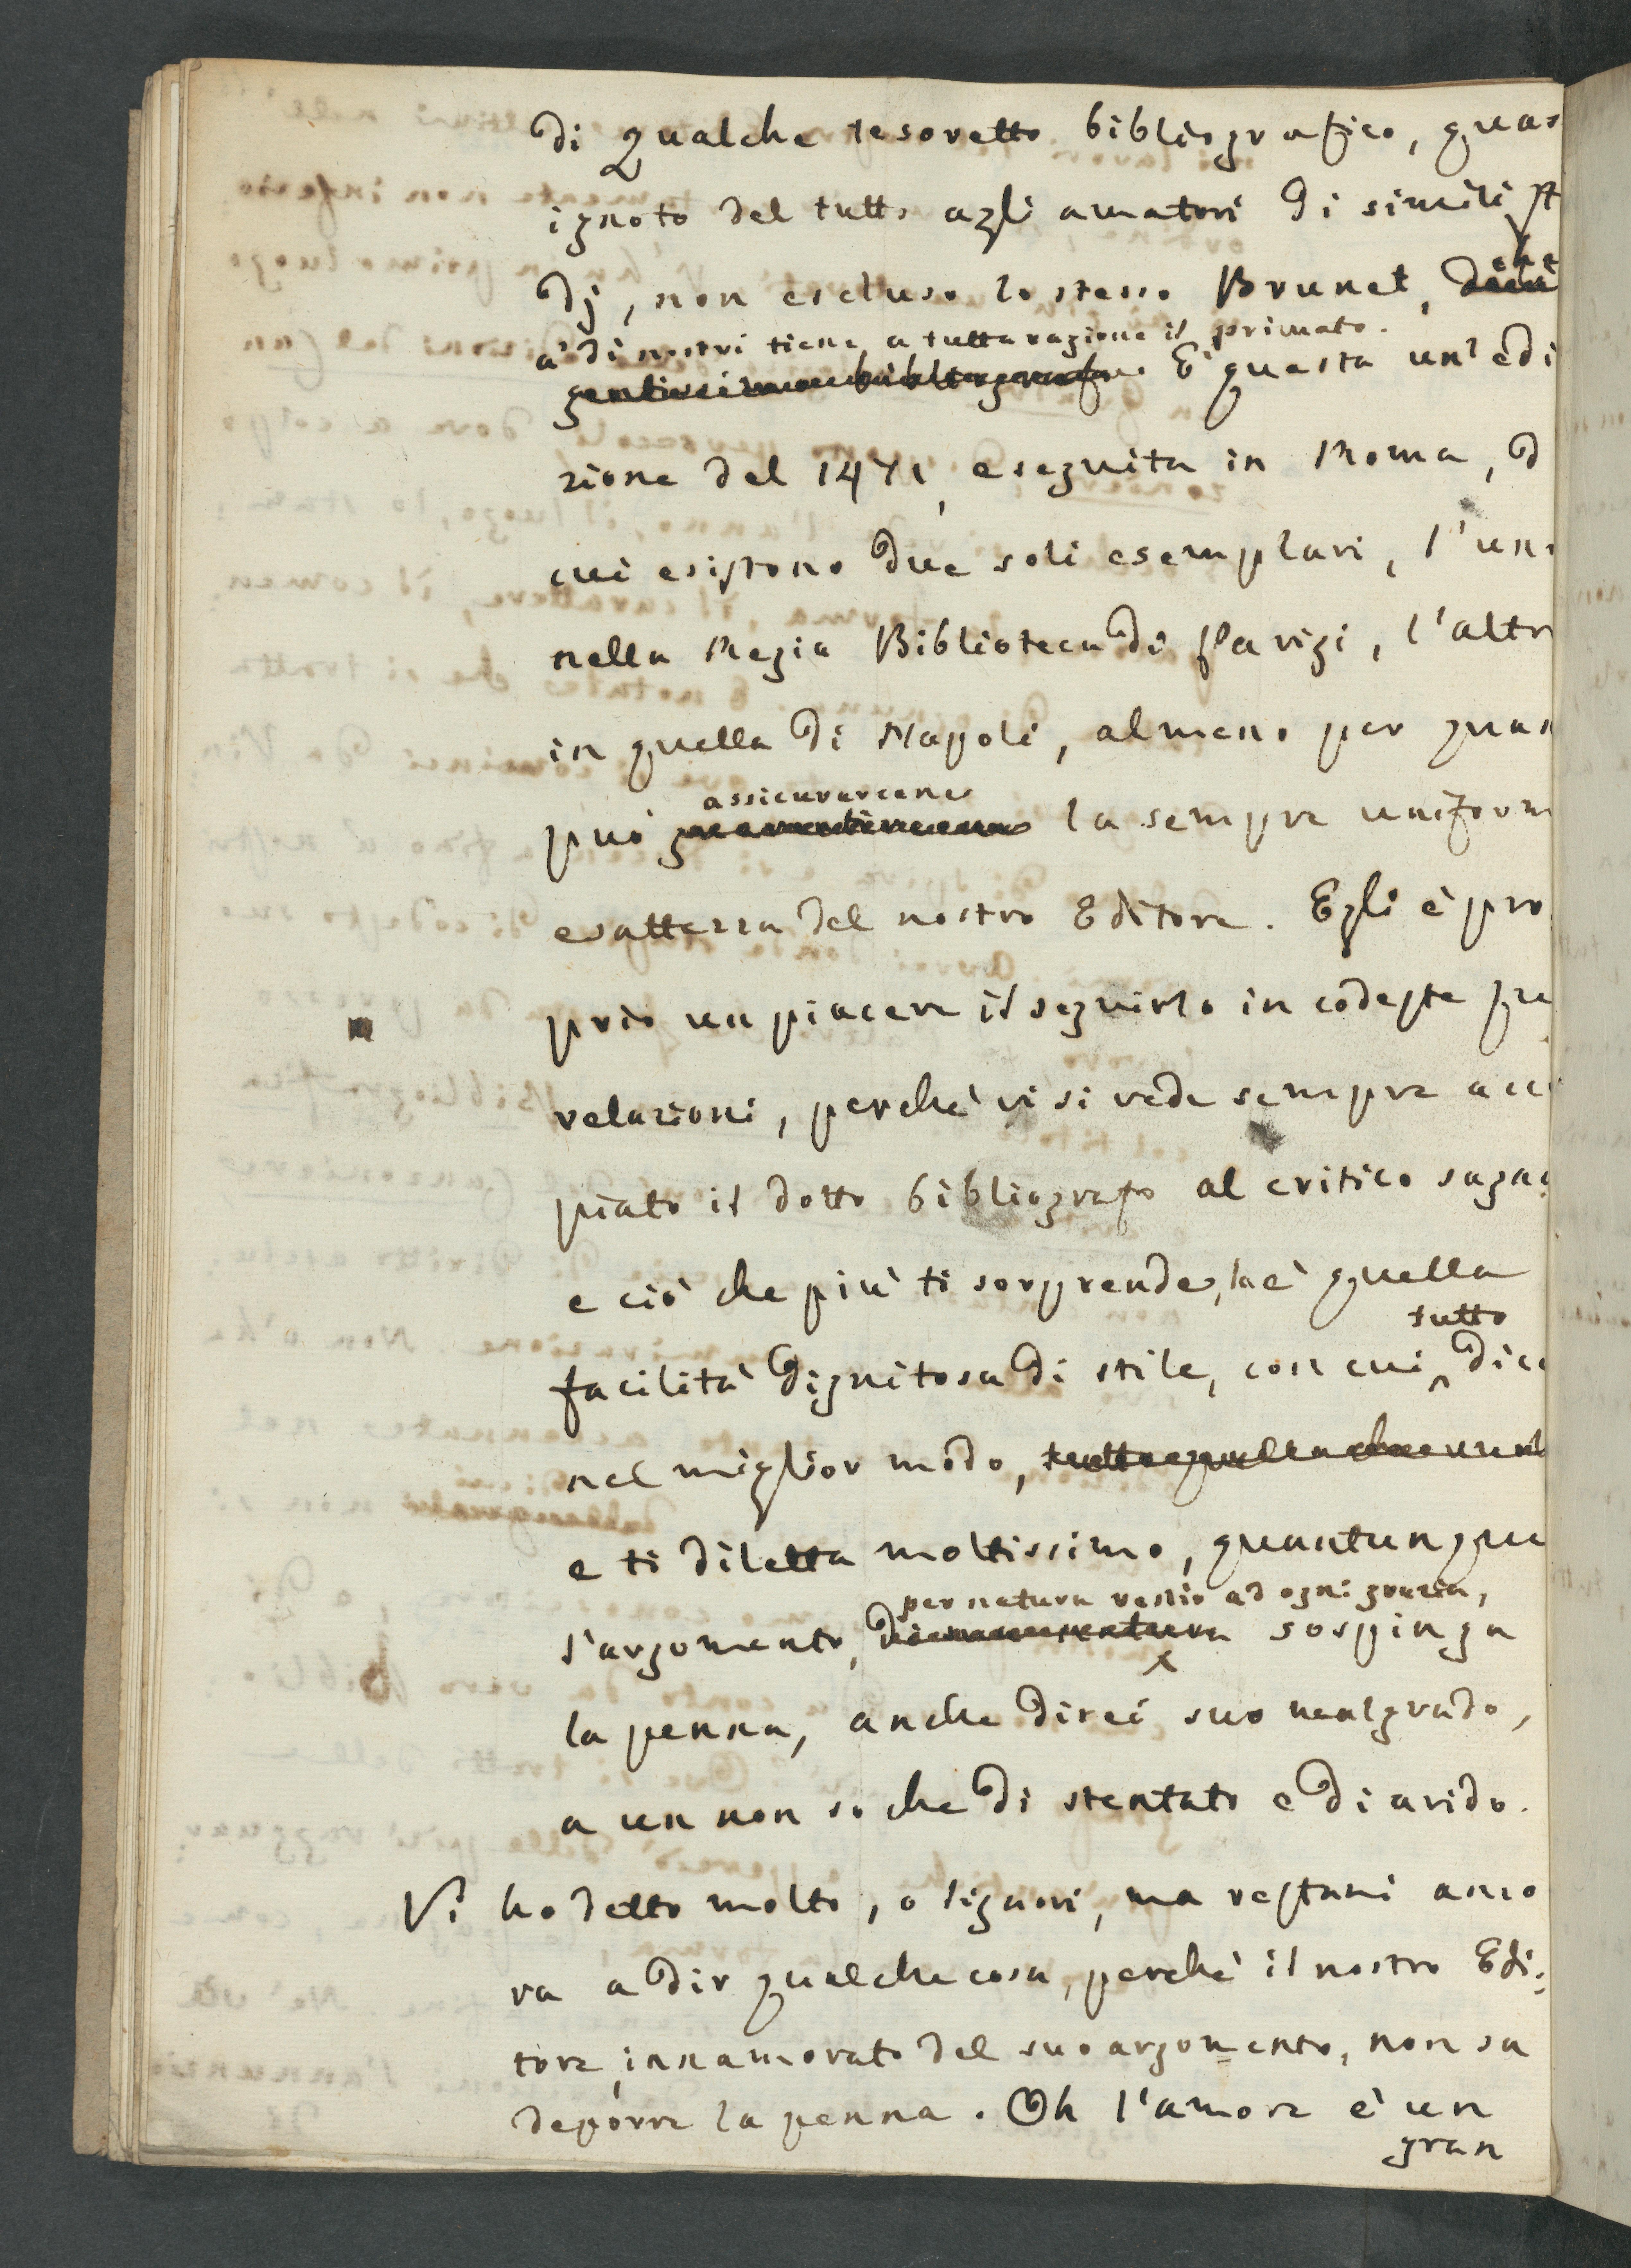 di qualche tesoretto bibliografico, quas
ignoto del tutto agli amatori di simili st
dj, non escluso lo stesso Brunet, che
a' dì nostri tiene a tutta ragione il primato.
E' questa un' edi
zione del 1471, eseguita in Roma, d
cui esistono due soli esemplari, l'uno
nella Regia Biblioteca di Parigi, l'altr
in quella di Napoli, almeno per quan
assicurarcene
può la sempre uniform
esattezza del nostro Editore. Egli è pro
prio un piacere il seguirlo in codeste sue
relazioni, perchè vi si vede sempre acco
piato il dotto bibliografo al critico sagac
e ciò che più ti sorprende, la è quella
tutto
facilità dignitosa di stile, con cui dice
nel miglior modo,
e ti diletta moltissimo, quantunque
per natura restio ad ogni grazia,
l'argomento, sospinga
la penna, anche direi suo malgrado,
a un non so che di stentato e di arido.
Vi ho detto molto, o Signori, ma restami anco
ra a dir qualche cosa, perchè il nostro Edi:
tore, innamorato del suo argomento, non sa
deporre la penna. Oh l'amore è un
gran